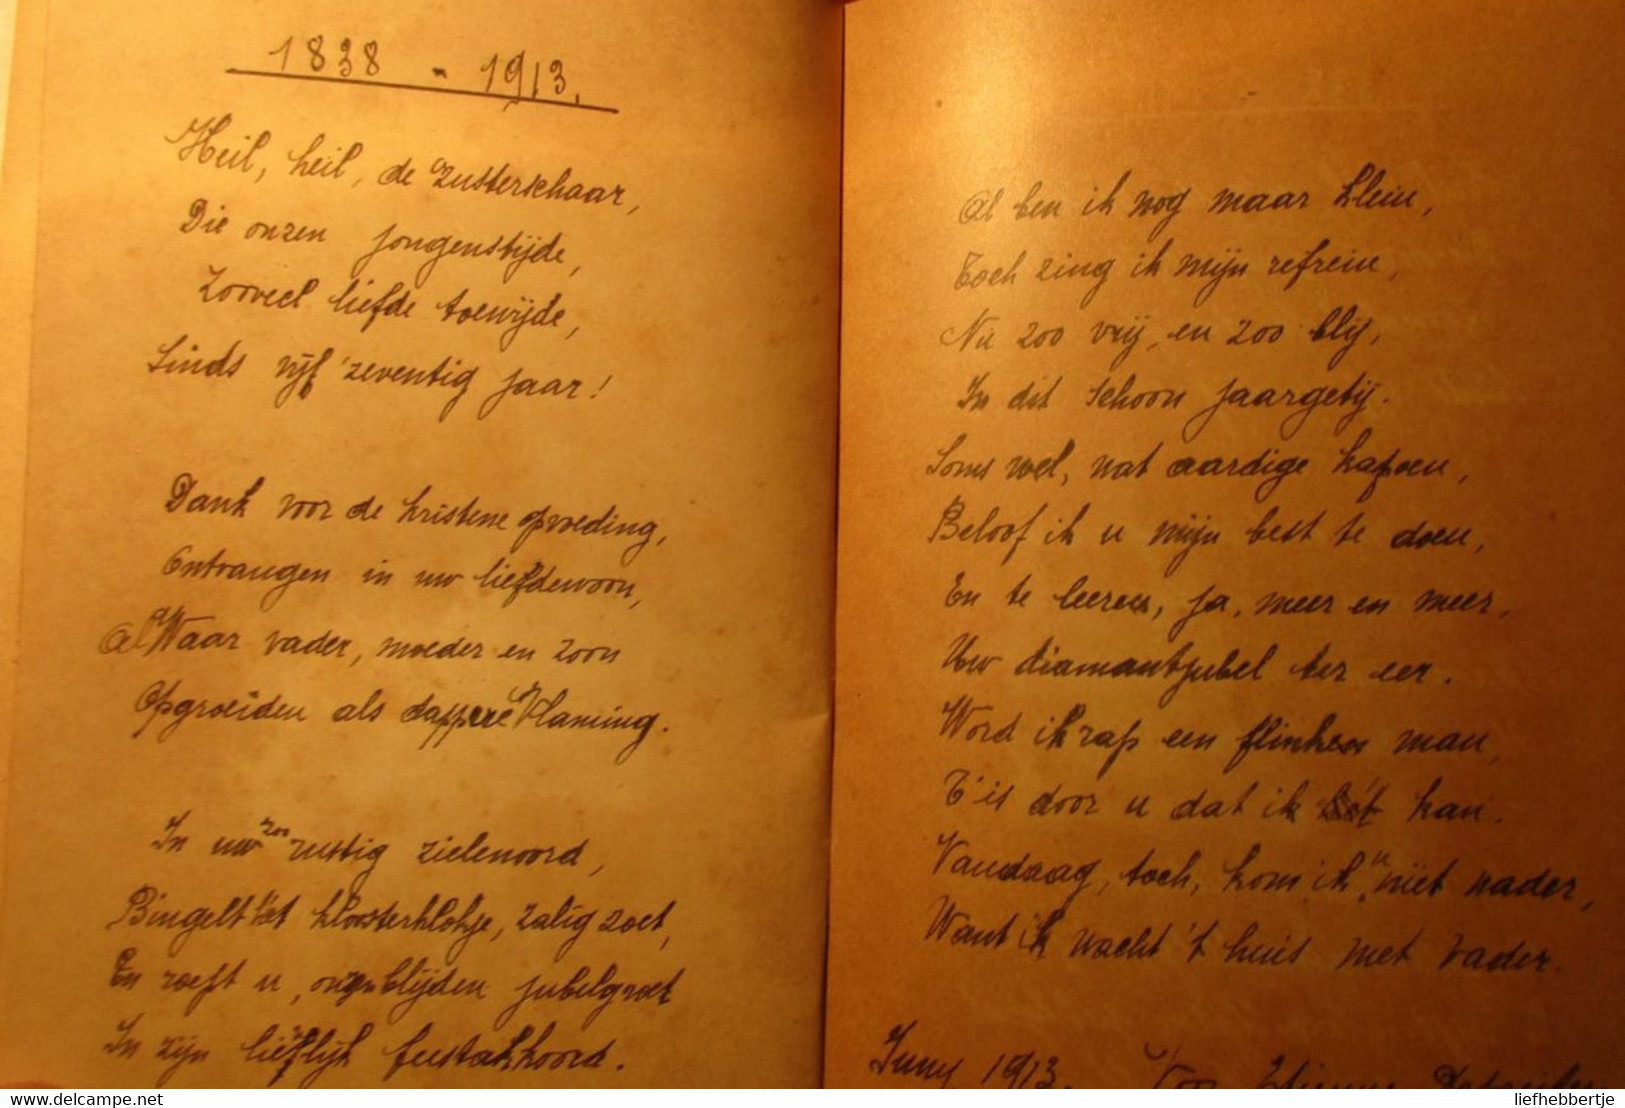 1838 - 1913.
Heil, heil, de zusterschaar,
Die onzen jongenstijde,
Zooveel liefde toewijde,
Sinds vijf 'zeventig jaar!
Dank voor de kristene opvoeding,
Ontvangen in uw liefdewoon,
Al Waar vader, moeder en zoon
Opgroeiden als dappere Vlaming.
In uw zoo rustig zielenoord,
Bingelt 't kloosterklokje, zalig zoet,
En roept u, onzen blijden jubelgroet
In zijn lieflijk feestakkoord.
Al ben ik nog maar klein,
Toch zing ik mijn refrein,
Nu zoo vrij, en zoo blij,
In dit schoon jaargetij.
Soms wel, wat aardige kapoen,
Beloof ik u mijn best te doen,
En te leeren, ja, meer en meer,
Uw diamantjubel ter eer.
Word ik rap een flinken man,
T'is door u dat ik het kan.
Vandaag, toch, kom ik u niet nader,
Want ik wacht 't huis met vader.
Juny 1913. Voor Etienne
PhotoAlbums.com
liefhebbertje